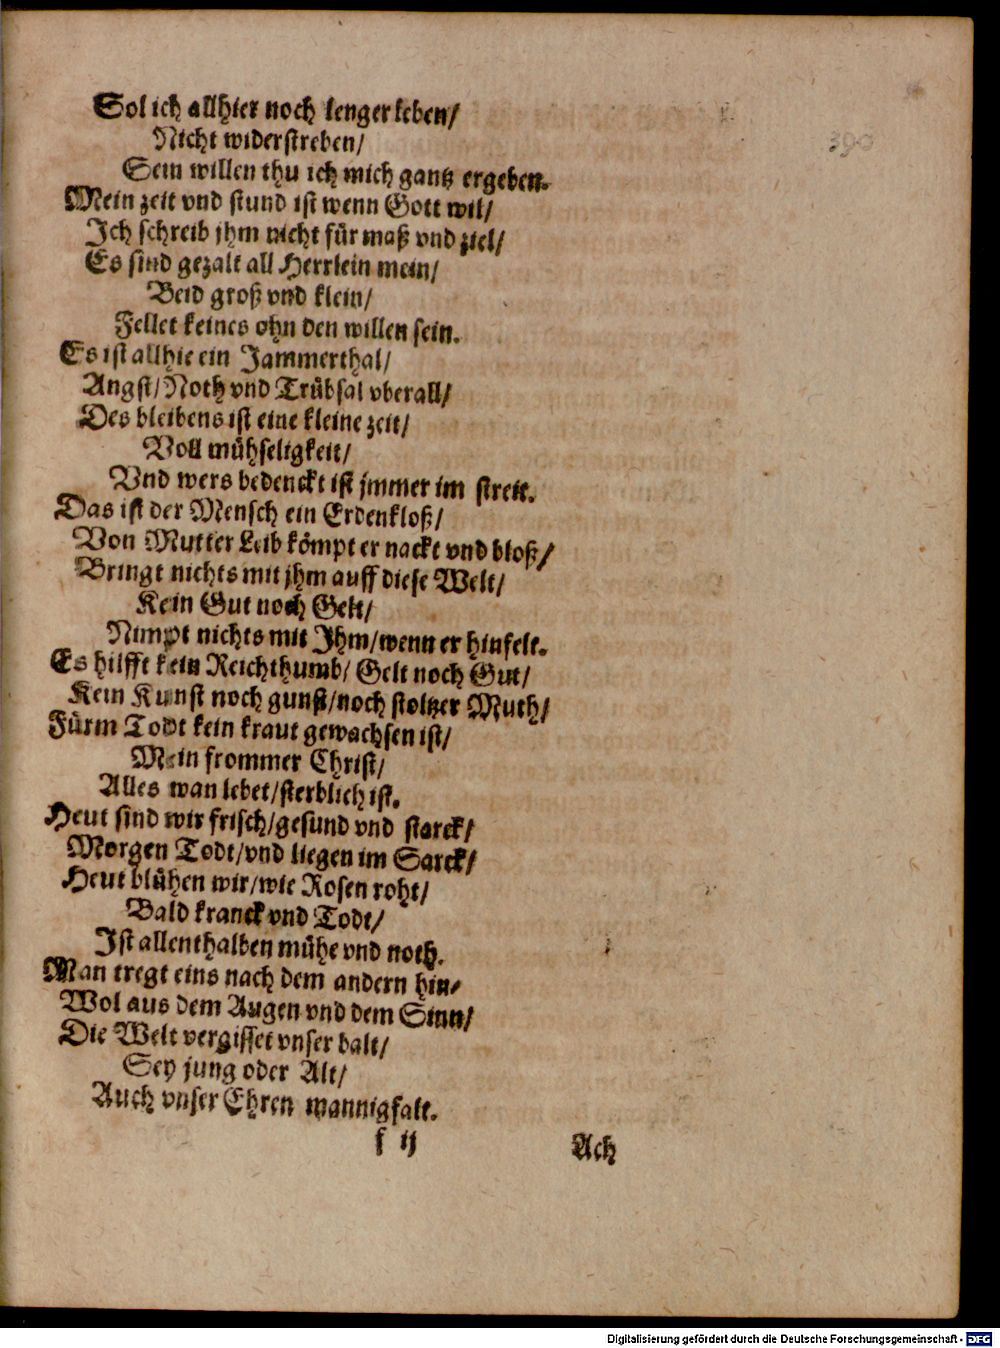 Sol ich allhier noch lenger leben/
Nicht widerstreben/
Sein willen thu ich mich gantz ergeben.
Mein zeit vnd stund ist wenn Gott wil/
Ich schreib jhm nicht für maß vnd ziel/
Es sind gezalt all Herrlein mein/
Beid groß vnd klein/
Fellet keines ohn den willen sein.
Es ist allhie ein Jammerthal/
Angst/ Noth vnd Trübsal vberall/
Des bleibens ist eine kleine zeit/
Voll mühseligkeit/
Vnd wers bedenckt ist jmmer im streit.
Das ist der Mensch ein Erdenkloß/
Von Mutter Leib kömpt er nackt vnd bloß/
Bringt nichts mit jhm auff diese Welt/
Kein Gut noch Gelt/
Nimpt nichts mit Ihm/wenn er hinfelt.
Es hilfft kein Reichthumb/ Gelt noch Gut/
Kein Kunst noch gunst/noch stoltzer Muth/
Fürm Todt kein kraut gewachsen ist/
Mein frommer Christ/
Alles wan lebet/sterblich ist.
Heut sind wir frisch/gesund vnd starck/
Morgen Todt/vnd liegen im Sarck/
Heut blühen wir/wie Rosen roht/
Bald kranck vnd Todt/
Ist allenthalben mühe vnd noth.
Man tregt eins nach dem andern hin/
Wol aus dem Augen vnd dem Sinn/
Die Welt vergisset vnser balt/
Sey jung oder Alt/
Auch vnser Ehren mannigfalt.
f ij Ach
390
Digitalisierung gefördert durch die Deutsche Forschungsgemeinschaft - DFG